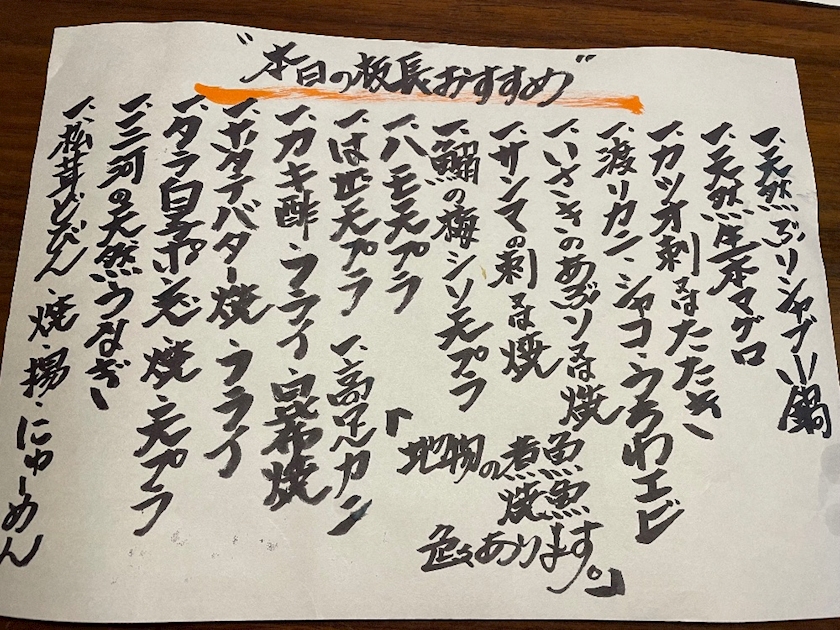 "本日の板長おすすめ"
一、天然ぶりシャブ小鍋
一、天然生本マグロ
一、カツオ刺又はたたき
一、渡リカニ、シャコ、うちわエビ
一、いさきのあぶり又は焼
一、サンマの刺又は焼
一、鰯の梅シソ天プラ
一、ハモ天プラ
一、は匹天プラ
一、高足カニ
「地物の煮魚
焼魚
色々あります。」
一、カキ酢・フライ・昆布焼
一、ホタテバター焼・フライ
一、タラ白子ポン酢・焼・天プラ
一、三河の天然うなぎ
一、松茸どびん・焼・揚・にゅーめん